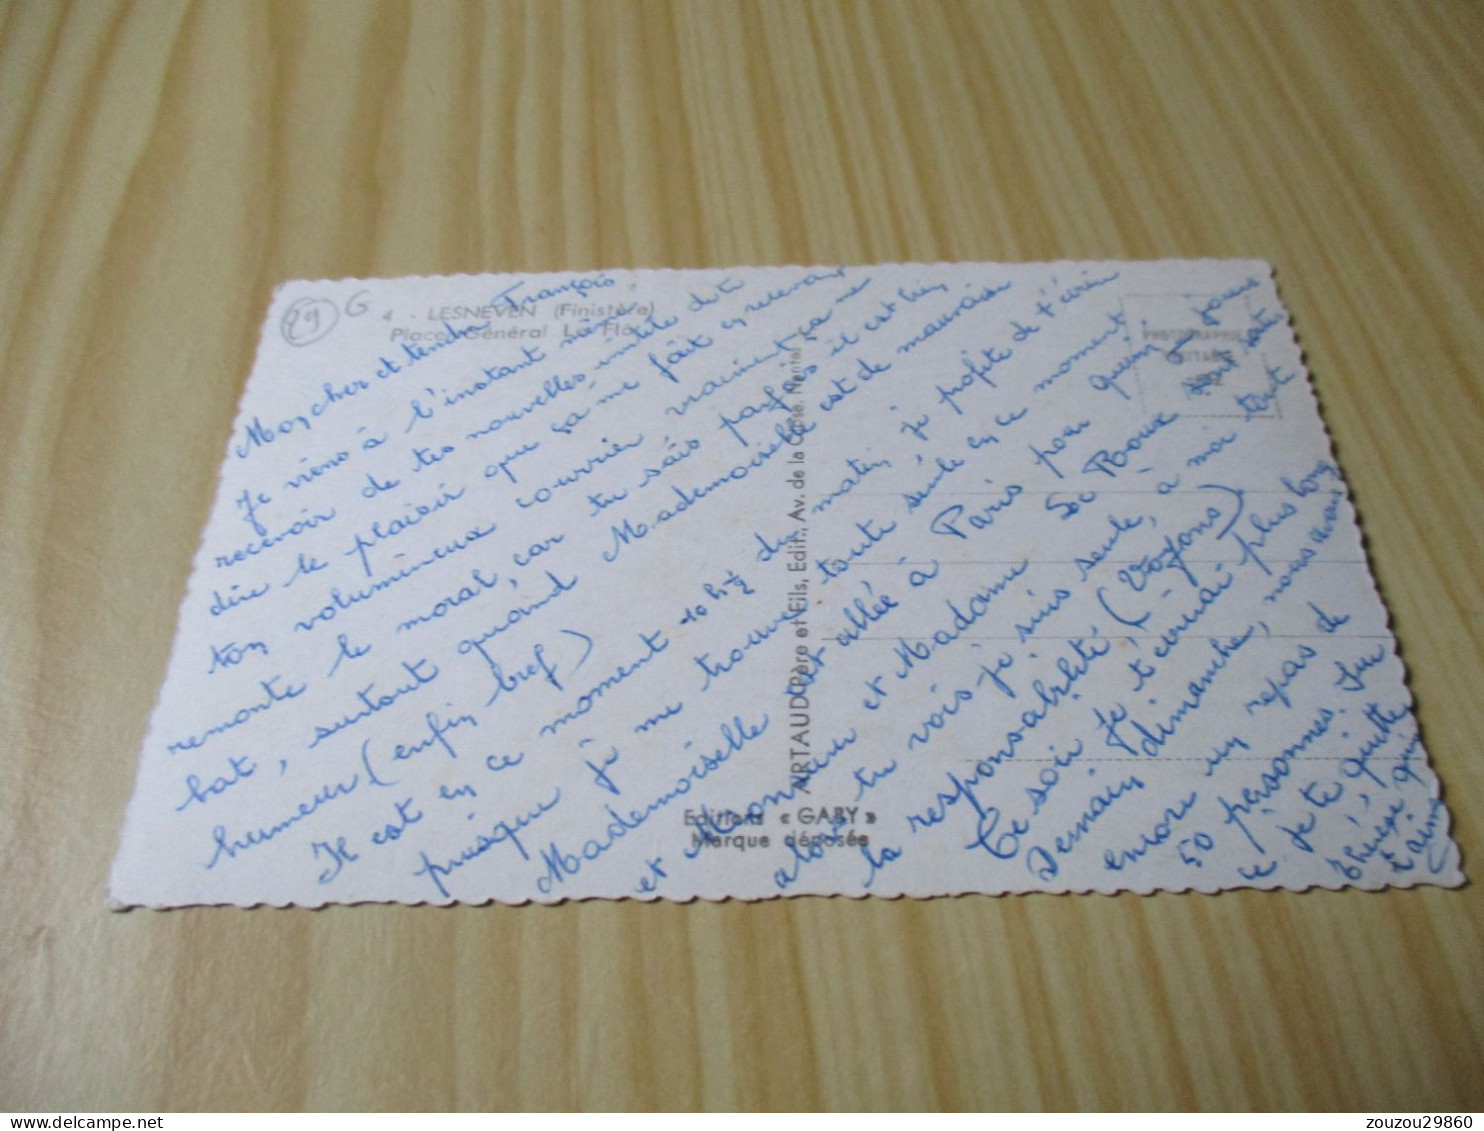 29 G
4 - LESNEVEN (Finistère)
Place Général Le Flô
PHOTOGRAPHIE
Editions « GABY »
Marque déposée
ARTAUD Père et Fils, Edit., Av. de la Close, Nantes
Mon cher et tendre François
Je viens à l'instant même
recevoir de tes nouvelles, inutile de te
dire le plaisir que ça me fait en recevant
ton volumineux courrier vraiment ça me
remonte le moral, car tu sais parfois il est bien
bat, surtout quand Mademoiselle est de mauvaise
humeur (enfin bref)
Il est en ce moment 10 h ½ du matin, je profite de t'écrire
puisque je me trouve toute seule en ce moment
Mademoiselle est allée à Paris pour
et Monsieur et Madame Le Roux sont
alors tu vois je suis seule, à moi tout
la responsabilité (Voyons)
Ce soir Je t'écrirai plus long
Demain dimanche, nous avons
encore un repas de
50 personnes. Sur
ce je te quitte
qui
t'aime
zouzou29860